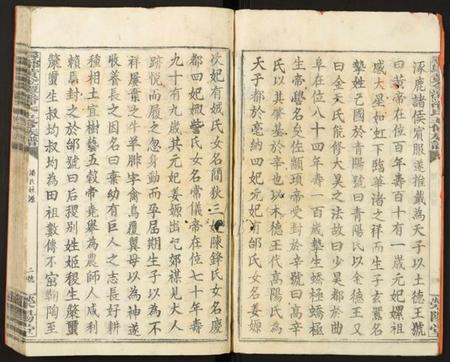 涿鹿諸侯賓服遂推戴為天子以土德王號
曰黃帝在位百年壽百十有一歲元妃嫘祖
感大星如虹下臨華渚之祥而生子玄囂名
摯姓己國於青陽號曰青陽氏以金德王又
曰金天氏能修大昊之法故曰少昊都於曲
阜在位八十四年壽一百歲摯生蟜極蟜極
生帝嚳名夋佐顓頊受封於辛號曰高辛
氏以其肇基於辛也以木德王代高陽氏為
天子都於亳納四妃元妃有邰氏女名姜嫄
次妃有娀氏女名簡狄三妃陳鋒氏女名慶
都四妃娵訾氏女名常儀帝在位七十年壽
九十有九歲其元妃姜嫄出祀郊禖見大人
跡悅而履之忽身動而孕屆期生子以為不
祥屢棄之牛羊腓字禽鳥覆翼母以為神遂
收養長之因名曰棄幼有巨人之志長好耕
種相土宜樹藝五穀帝堯舉為農師人咸利
賴焉封之於邰號曰后稷別姓姬稷生𣸸璽
𣸸璽生叔均叔均為田祖數傳不窋鞠陶至
潘氏社港
二號
滎陽堂